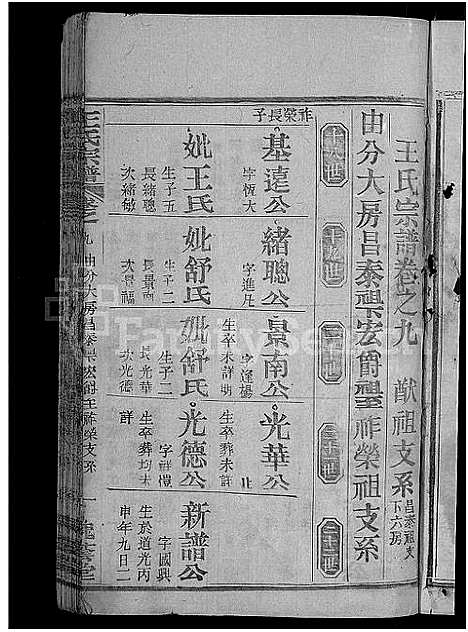 王氏宗譜卷之九 猷祖支系 昌泰祖支下六房
由分大房昌泰舉宏爵璽祚榮祖支系
十八世
十九世
二十世
二十一世
二十二世
祚榮長子
基遠公
字恆大
妣王氏
生子五
長緒聰
次緒敏
緒聰公
字進凡
妣舒氏
生子二
長景南
次景福
景南公
字逢楊
生卒未詳
妣舒氏
生子二
長光華
次光德
光華公
生卒葬未詳
光德公
字祥
生卒葬均未詳
新譜公
字國興
生於道光丙
申年九月二
王氏宗譜
卷之九 由分大房昌泰舉宏爵璽祚榮支系 一
FamilySearch